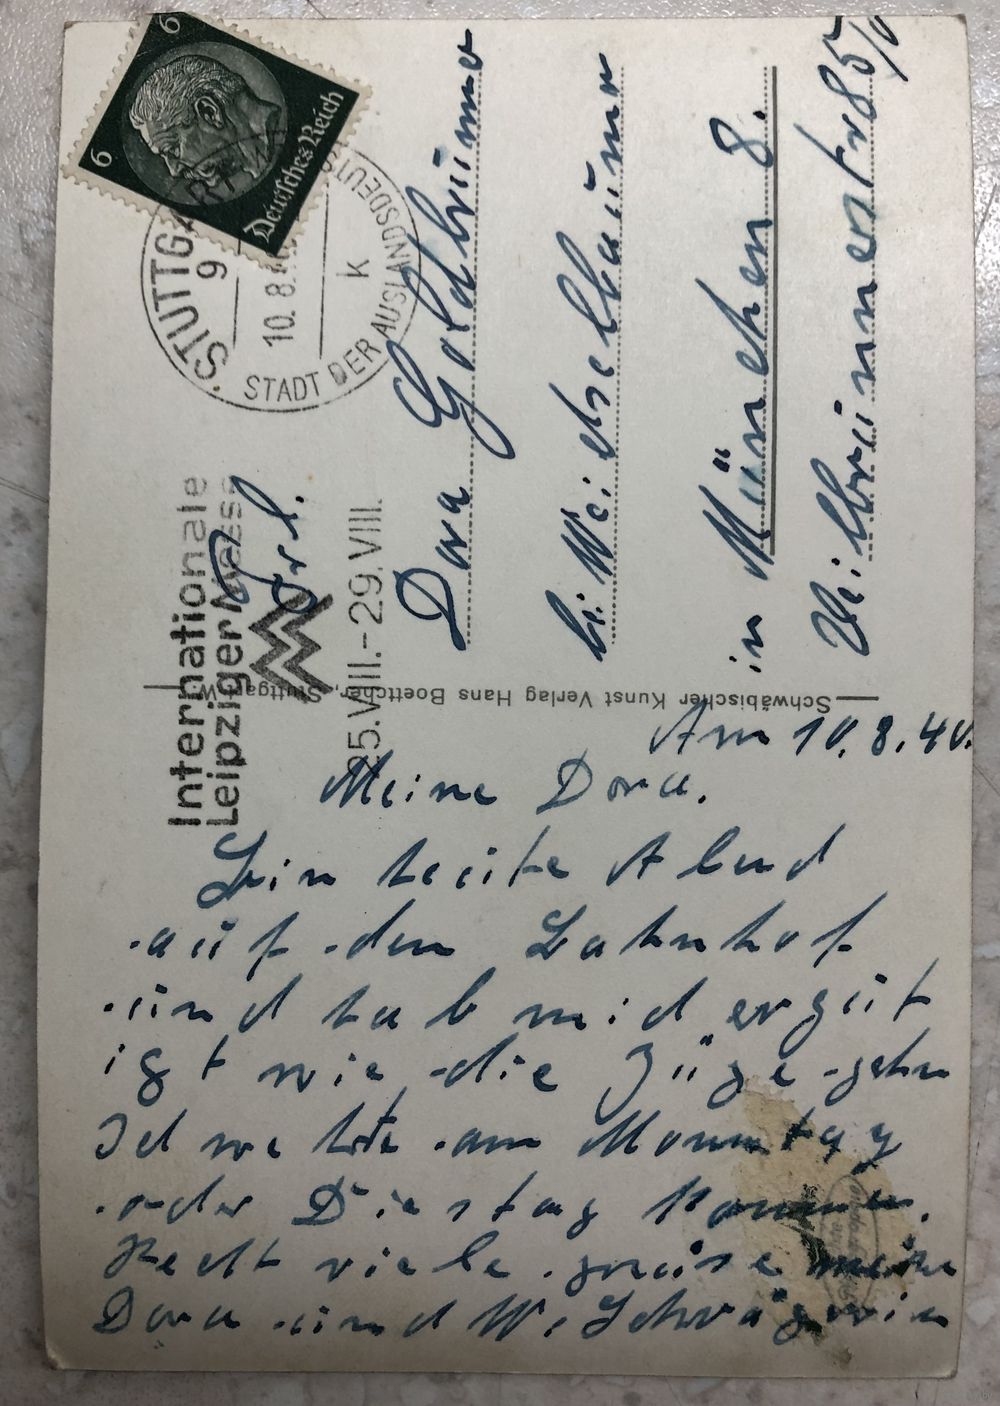 6
6
Deutsches Reich
STUTTGART
9
10.8.
k
STADT DER AUSLANDSDEUTSCHEN
Internationale
Leipziger Messe
25.VIII.-29.VIII.
Frl.
Dora Goldbrunner
bei Weichselbaumer
in München 8.
Weilbrunnerstr 85/
Schwäbischer Kunst Verlag Hans Boettcher, Stuttgart-W
Am 10.8.40.
Meine Dora.
Bin heite Abend
auf den Bahnhof
und hab mid ergüt
igt wie die Züge gehn
Ich we hte am Monntag
oder Diestag kommen.
Recht viele grüse meine
Dora und W. Schwägerin